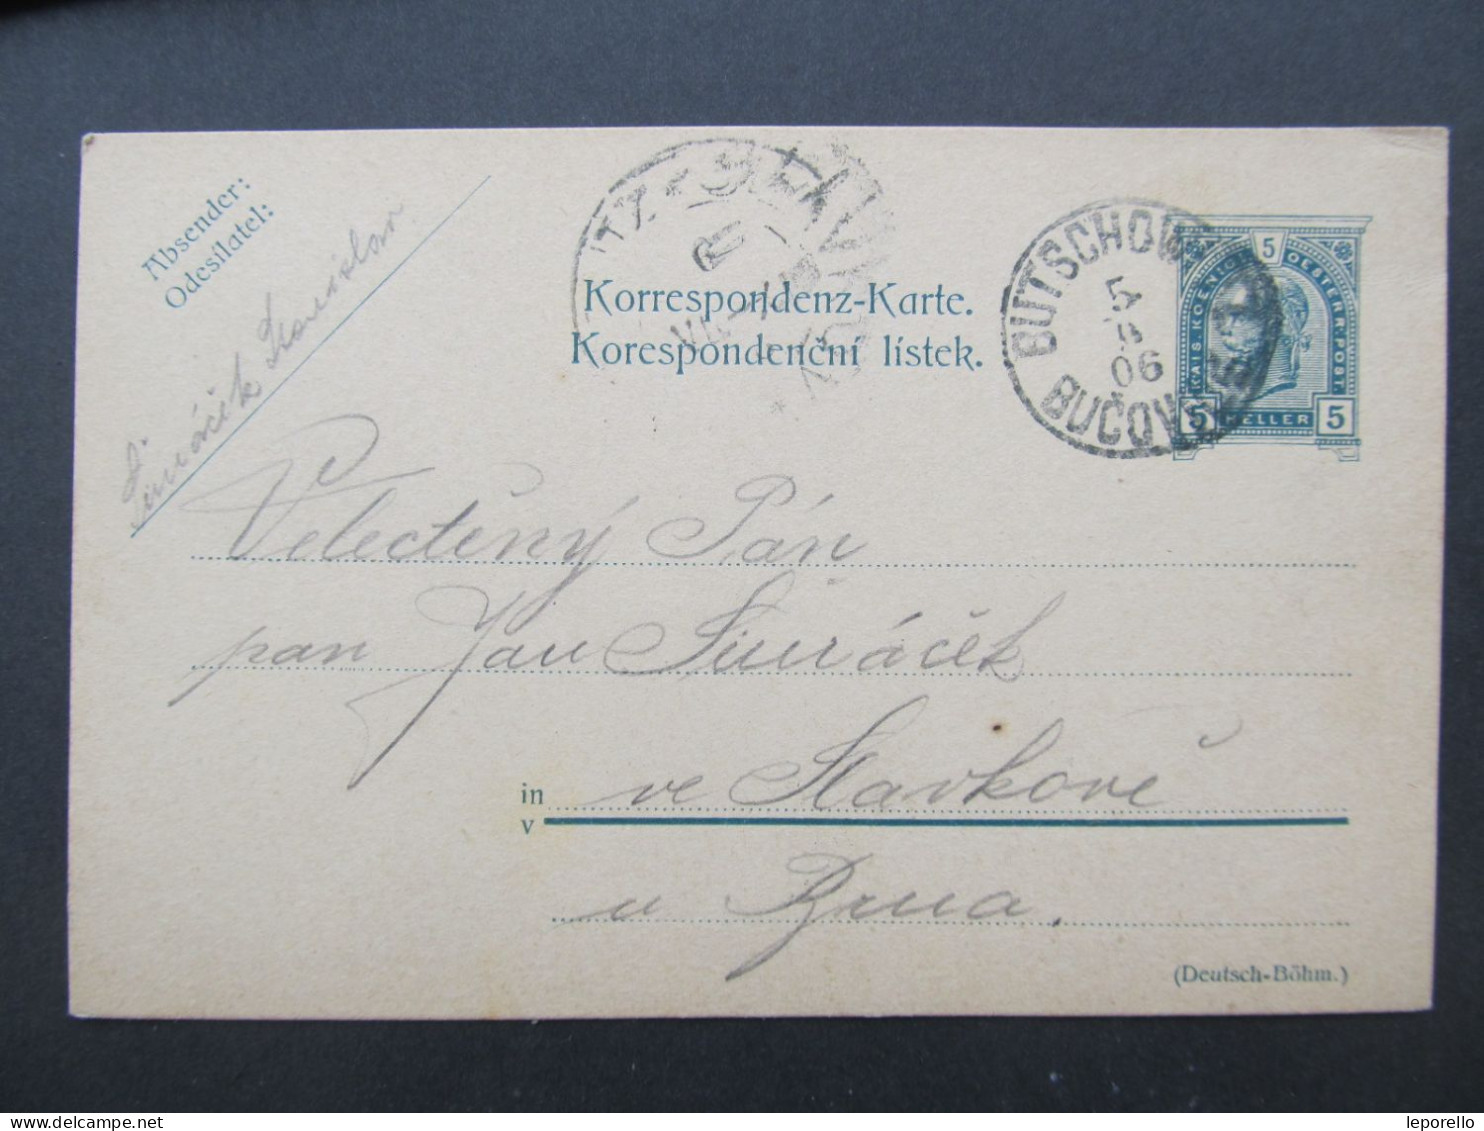 Absender:
Odesílatel:
Korrespondenz-Karte.
Korespondenční lístek.
BUTSCHOWITZ
06
KAIS. KOENIGL. 5 OESTERR. POST.
5 HELLER 5
Velectěný Pán
pan Jan Šimáček
in
v
ve Slavkově
u Brna.
(Deutsch-Böhm.)
www.delcampe.net
leporello